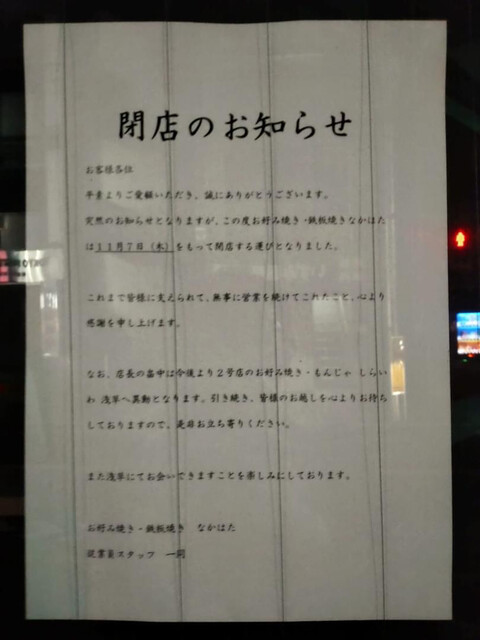 閉店のお知らせ
お客様各位
平素よりご愛顧いただき、誠にありがとうございます。
突然のお知らせとなりますが、この度お好み焼き・鉄板焼きなかはた
は11月7日（木）をもって閉店する運びとなりました。
これまで皆様に支えられて、無事に営業を続けてこれたこと、心より
感謝を申し上げます。
なお、店長の畠中は今後より2号店のお好み焼き・もんじゃ しらい
わ 浅草へ異動となります。引き続き、皆様のお越しを心よりお待ち
しておりますので、是非お立ち寄りください。
また浅草にてお会いできますことを楽しみにしております。
お好み焼き・鉄板焼き　なかはた
従業員スタッフ　一同